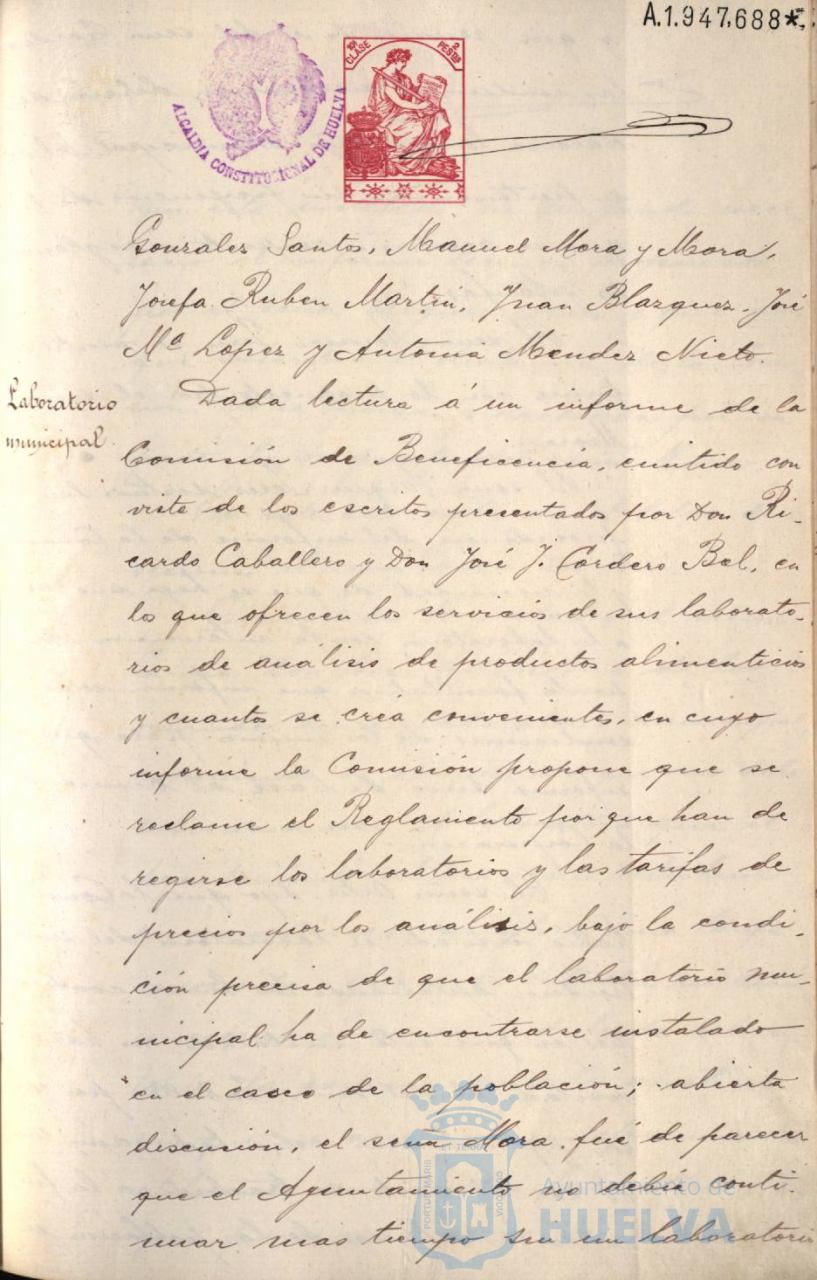 A.1.947.688*
10ª CLASE 2 PESTAS
ALCALDIA CONSTITUCIONAL DE HUELVA
Gonzalez Santos, Manuel Mora y Mora,
Josefa Ruben Martin, Juan Blazquez, José
Mª Lopez y Antonia Mendez Nieto.
Laboratorio
municipal.
Dada lectura á un informe de la
Comisión de Beneficencia, emitido con
vista de los escritos presentados por Don Ri-
cardo Caballero y Don José J. Cordero Bel, en
los que ofrecen los servicios de sus laborato-
rios de análisis de productos alimenticios
y cuantos se crea convenientes, en cuyo
informe la Comisión propone que se
reclame el Reglamento por que han de
regirse los laboratorios y las tarifas de
precios por los análisis, bajo la condi-
ción precisa de que el laboratorio mu-
nicipal ha de encontrarse instalado
en el casco de la población; abierta
discusión, el señor Mora fué de parecer
que el Ayuntamiento no debía conti-
nuar mas tiempo sin un laboratorio
Ayuntamiento de
HUELVA